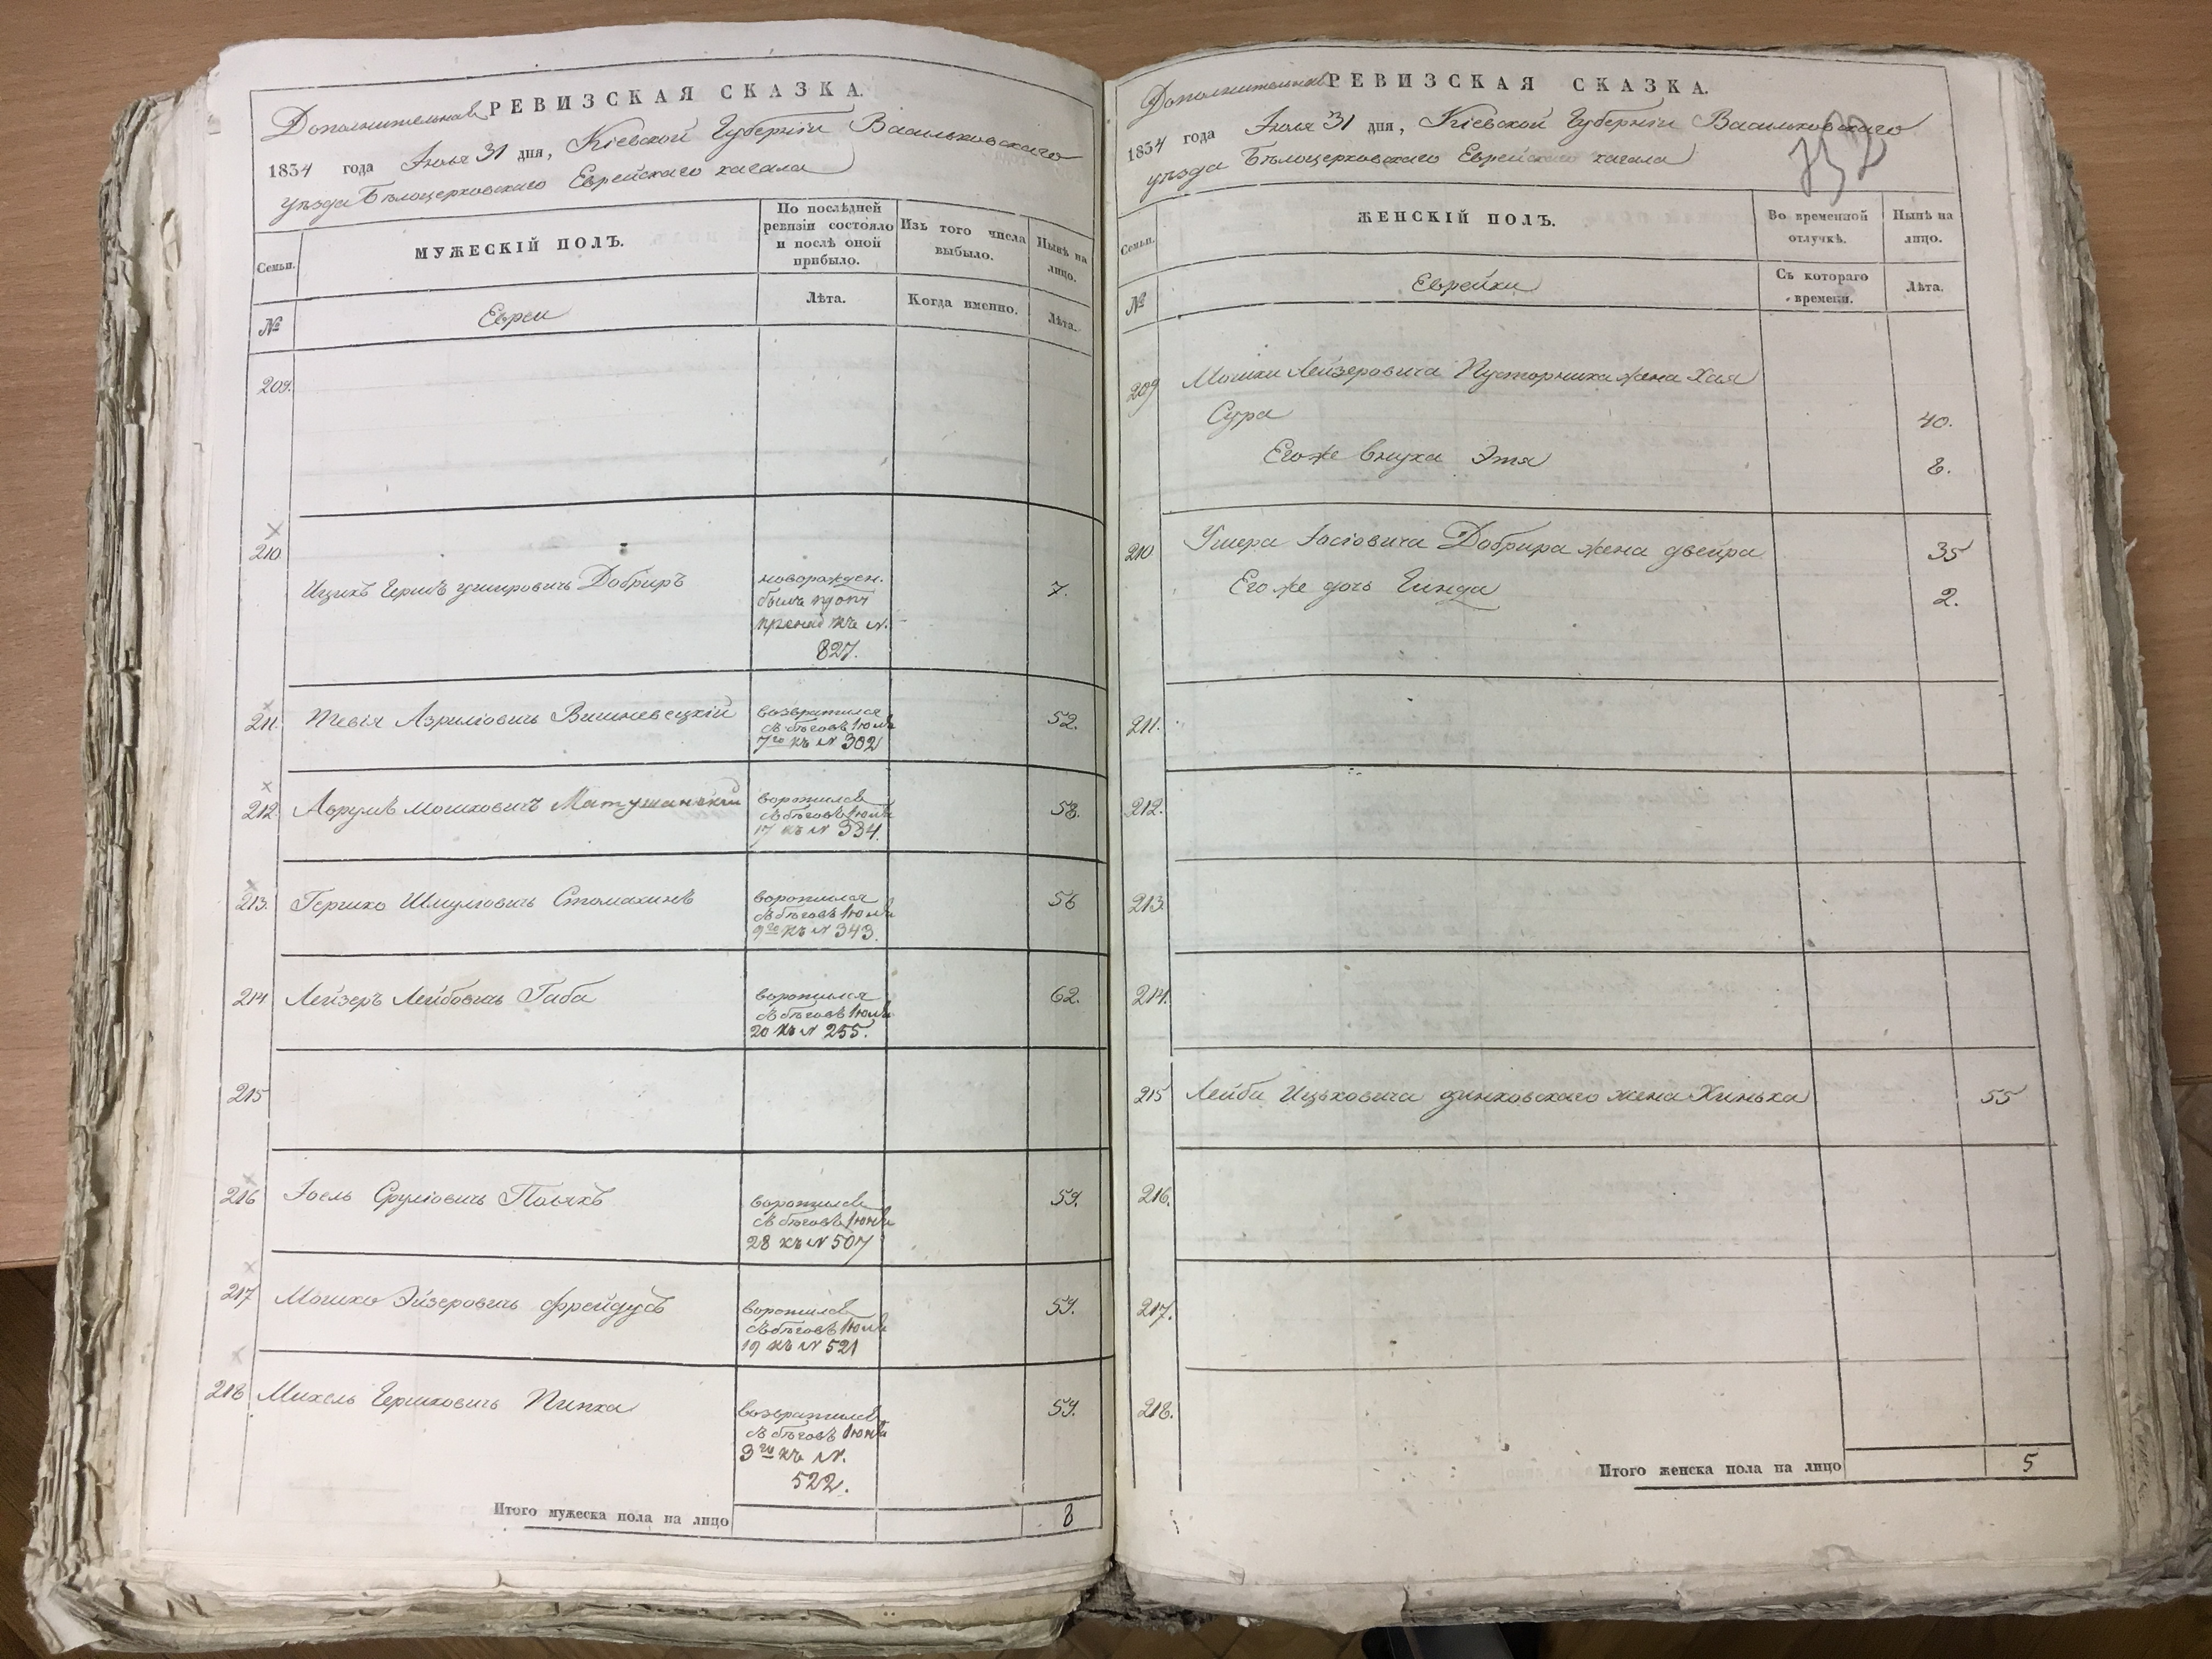 Дополнительная РЕВИЗСКАЯ СКАЗКА.
1834 года Июля 31 дня, Кіевской Губерніи Васильковскаго
уѣзда Бѣлоцерковскаго Еврейскаго кагала
Семьи.
МУЖЕСКІЙ ПОЛЪ.
По послѣдней
ревизіи состояло
и послѣ оной
прибыло.
Изъ того числа
выбыло.
Нынѣ на
лицо.
№
Евреи
Лѣта.
Когда именно.
Лѣта.
209.
210
Ицикъ Гершъ Ушеровичъ Добриръ
новорожден.
былъ
къ №.
827.
7.
211.
Тевія Азриліовичъ Вишневецкій
возвратился
съ бѣговъ Іюля
7го къ № 302
52.
212.
Аврумъ Мошковичъ Матушанскій
воротился
съ бѣговъ Іюля
17 къ № 334.
58.
213.
Гершко Шмуліовичъ Стомахинъ
воротился
съ бѣговъ Іюля
9го къ № 343.
56
214
Лейзеръ Лейбовичъ Габа
воротился
съ бѣговъ Іюля
20 къ № 255.
62.
215
216
Іосль Сруліовичъ Полякъ
воротился
съ бѣговъ Іюня
28 къ № 507
59.
217
Мошко Эйзеровичъ Фрейдусъ
воротился
съ бѣговъ Іюля
19 къ № 521
59.
218
Михель Гершковичъ Пипка
возвратился
съ бѣговъ Іюня
3го къ №.
522.
59.
Итого мужеска пола на лицо
8
Дополнительная РЕВИЗСКАЯ СКАЗКА.
1834 года Июля 31 дня, Кіевской Губерніи Васильковскаго
уѣзда Бѣлоцерковскаго Еврейскаго кагала
Семьи.
ЖЕНСКІЙ ПОЛЪ.
Во временной
отлучкѣ.
Нынѣ на
лицо.
№
Еврейки
Съ котораго
времени.
Лѣта.
209
Мошки Лейзеровича Пусторника жена Хая
Сура
40.
Его же внука Этя
8.
210
Ушера Іосіовича Добрира жена Двейра
35
Его же дочь Гинда
2.
211.
212.
213.
214.
215
Лейба Ицьковича Динковскаго жена Хинька
55
216.
217.
218.
Итого женска пола на лицо
5